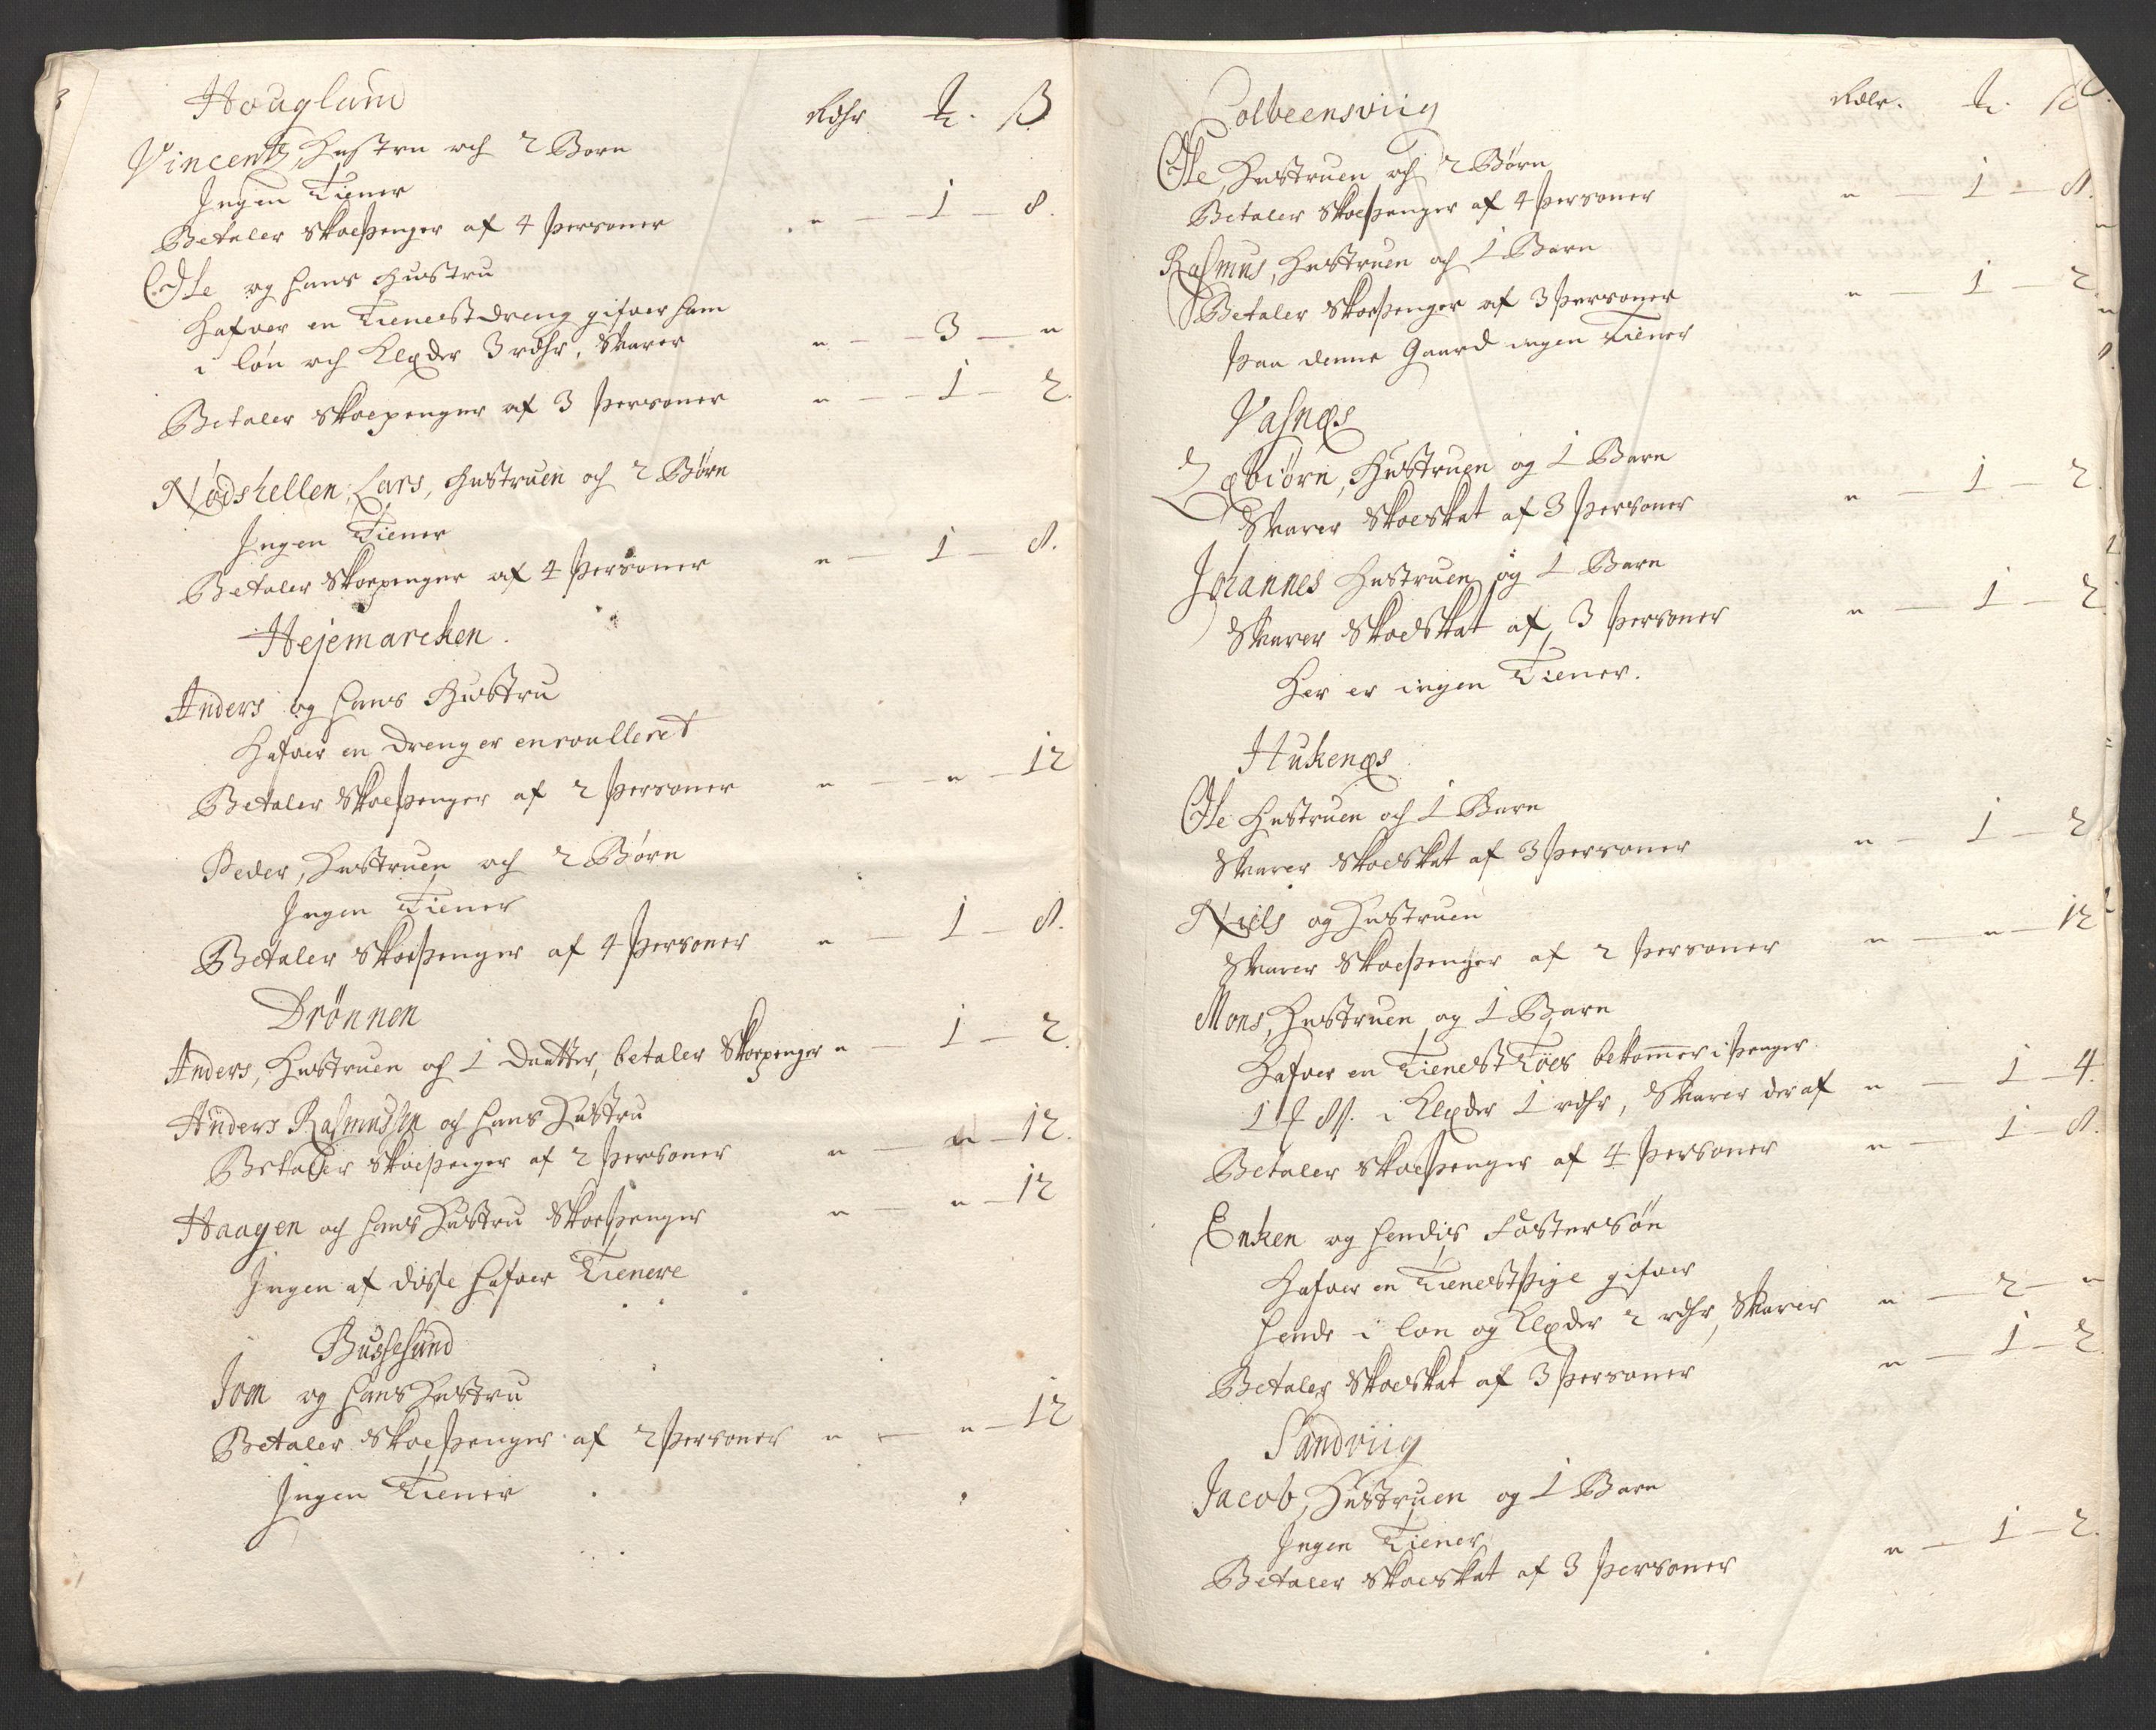 Houglum
Rdlr ₰. ß
Vincentz, Hustru och 2 Børn
Ingen Tiener
Betaler Skoepenger af 4 Personer " — 1 — 8.
Ole og hans Hustru
Hafver en Tienestdreng gifver ham
i løn och Klæder 3 rdlr, Svarer " — 3 — "
Betaler Skoepenger af 3 Personer " — 1 — 2.
Nødshellen, Lars, Hustruen och 2 Børn
Ingen Tiener
Betaler Skoepenger af 4 Personer " — 1 — 8.
Hejemarcken.
Anders og hans Hustru
Hafver en Dreng er enroulleret
Betaler Skoepenger af 2 Personer " — " — 12
Peder, Hustruen och 2 Børn
Ingen Tiener
Betaler Skoepenger af 4 Personer " — 1 — 8.
Drönnen
Anders, Hustruen og 1 Daatter, betaler Skoepenger " — 1 — 2.
Anders Rasmussen och hans Hustru
Betaler Skoepenger af 2 Personer " — " — 12.
Haagen och hans Hustru Skoepenger " — " — 12
Ingen af disse hafver Tienere
Bussesund
Jon og hans Hustru
Betaler Skoepenger af 2 Personer " — " — 12
Ingen Tiener
Colbeensviig
Rdlr. ₰. ß
Ole, Hustruen och 2 Børn
Betaler Skoepenger af 4 Personer " — 1 — 8.
Rasmus, Hustruen og 1 Barn
Betaler Skoepenger af 3 Personer " — 1 — 2
Paa denne Gaard ingen Tiener
Vasnæs
Esbiørn, Hustruen og 1 Barn
Svarer Skoeskat af 3 Personer " — 1 — 2.
Johannes Hustruen og 1 Barn
Svarer Skoeskat af 3 Personer " — 1 — 2
Her er ingen Tiener.
Hukenæs
Ole Hustruen och 1 Barn
Svarer Skoeskat af 3 Personer " — 1 — 2
Niels og Hustruen
Svarer Skoepenger af 2 Personer " — " — 12
Mons, Hustruen og 1 Barn
Hafver en Tienest Tøes bekommer i Penger
1 ₰ 8 ß. i Klæder 1 rdlr, Svarer der af " — 1 — 4.
Betaler Skoepenger af 4 Personer " — 1 — 8.
Enken og hendis Fostersøn
Hafver en Tienestpige gifver
hende i løn og Klæder 2 rdlr, Svarer " — 2 — "
Betaler Skoeskat af 3 Personer " — 1 — 2
Sandviig
Jacob, Hustruen og 1 Barn
Ingen Tiener
Betaler Skoeskat af 3 Personer " — 1 — 2.